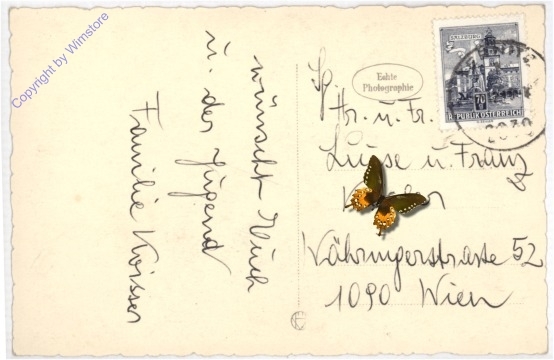 Copyright by Wimstore
wünscht Euch
u. der Jugend
Familie
Echte
Photographie
SALZBURG
70
REPUBLIK ÖSTERREICH
Hr. u. Fr.
Luise u. Franz
Währingerstrasse 52
1090 Wien